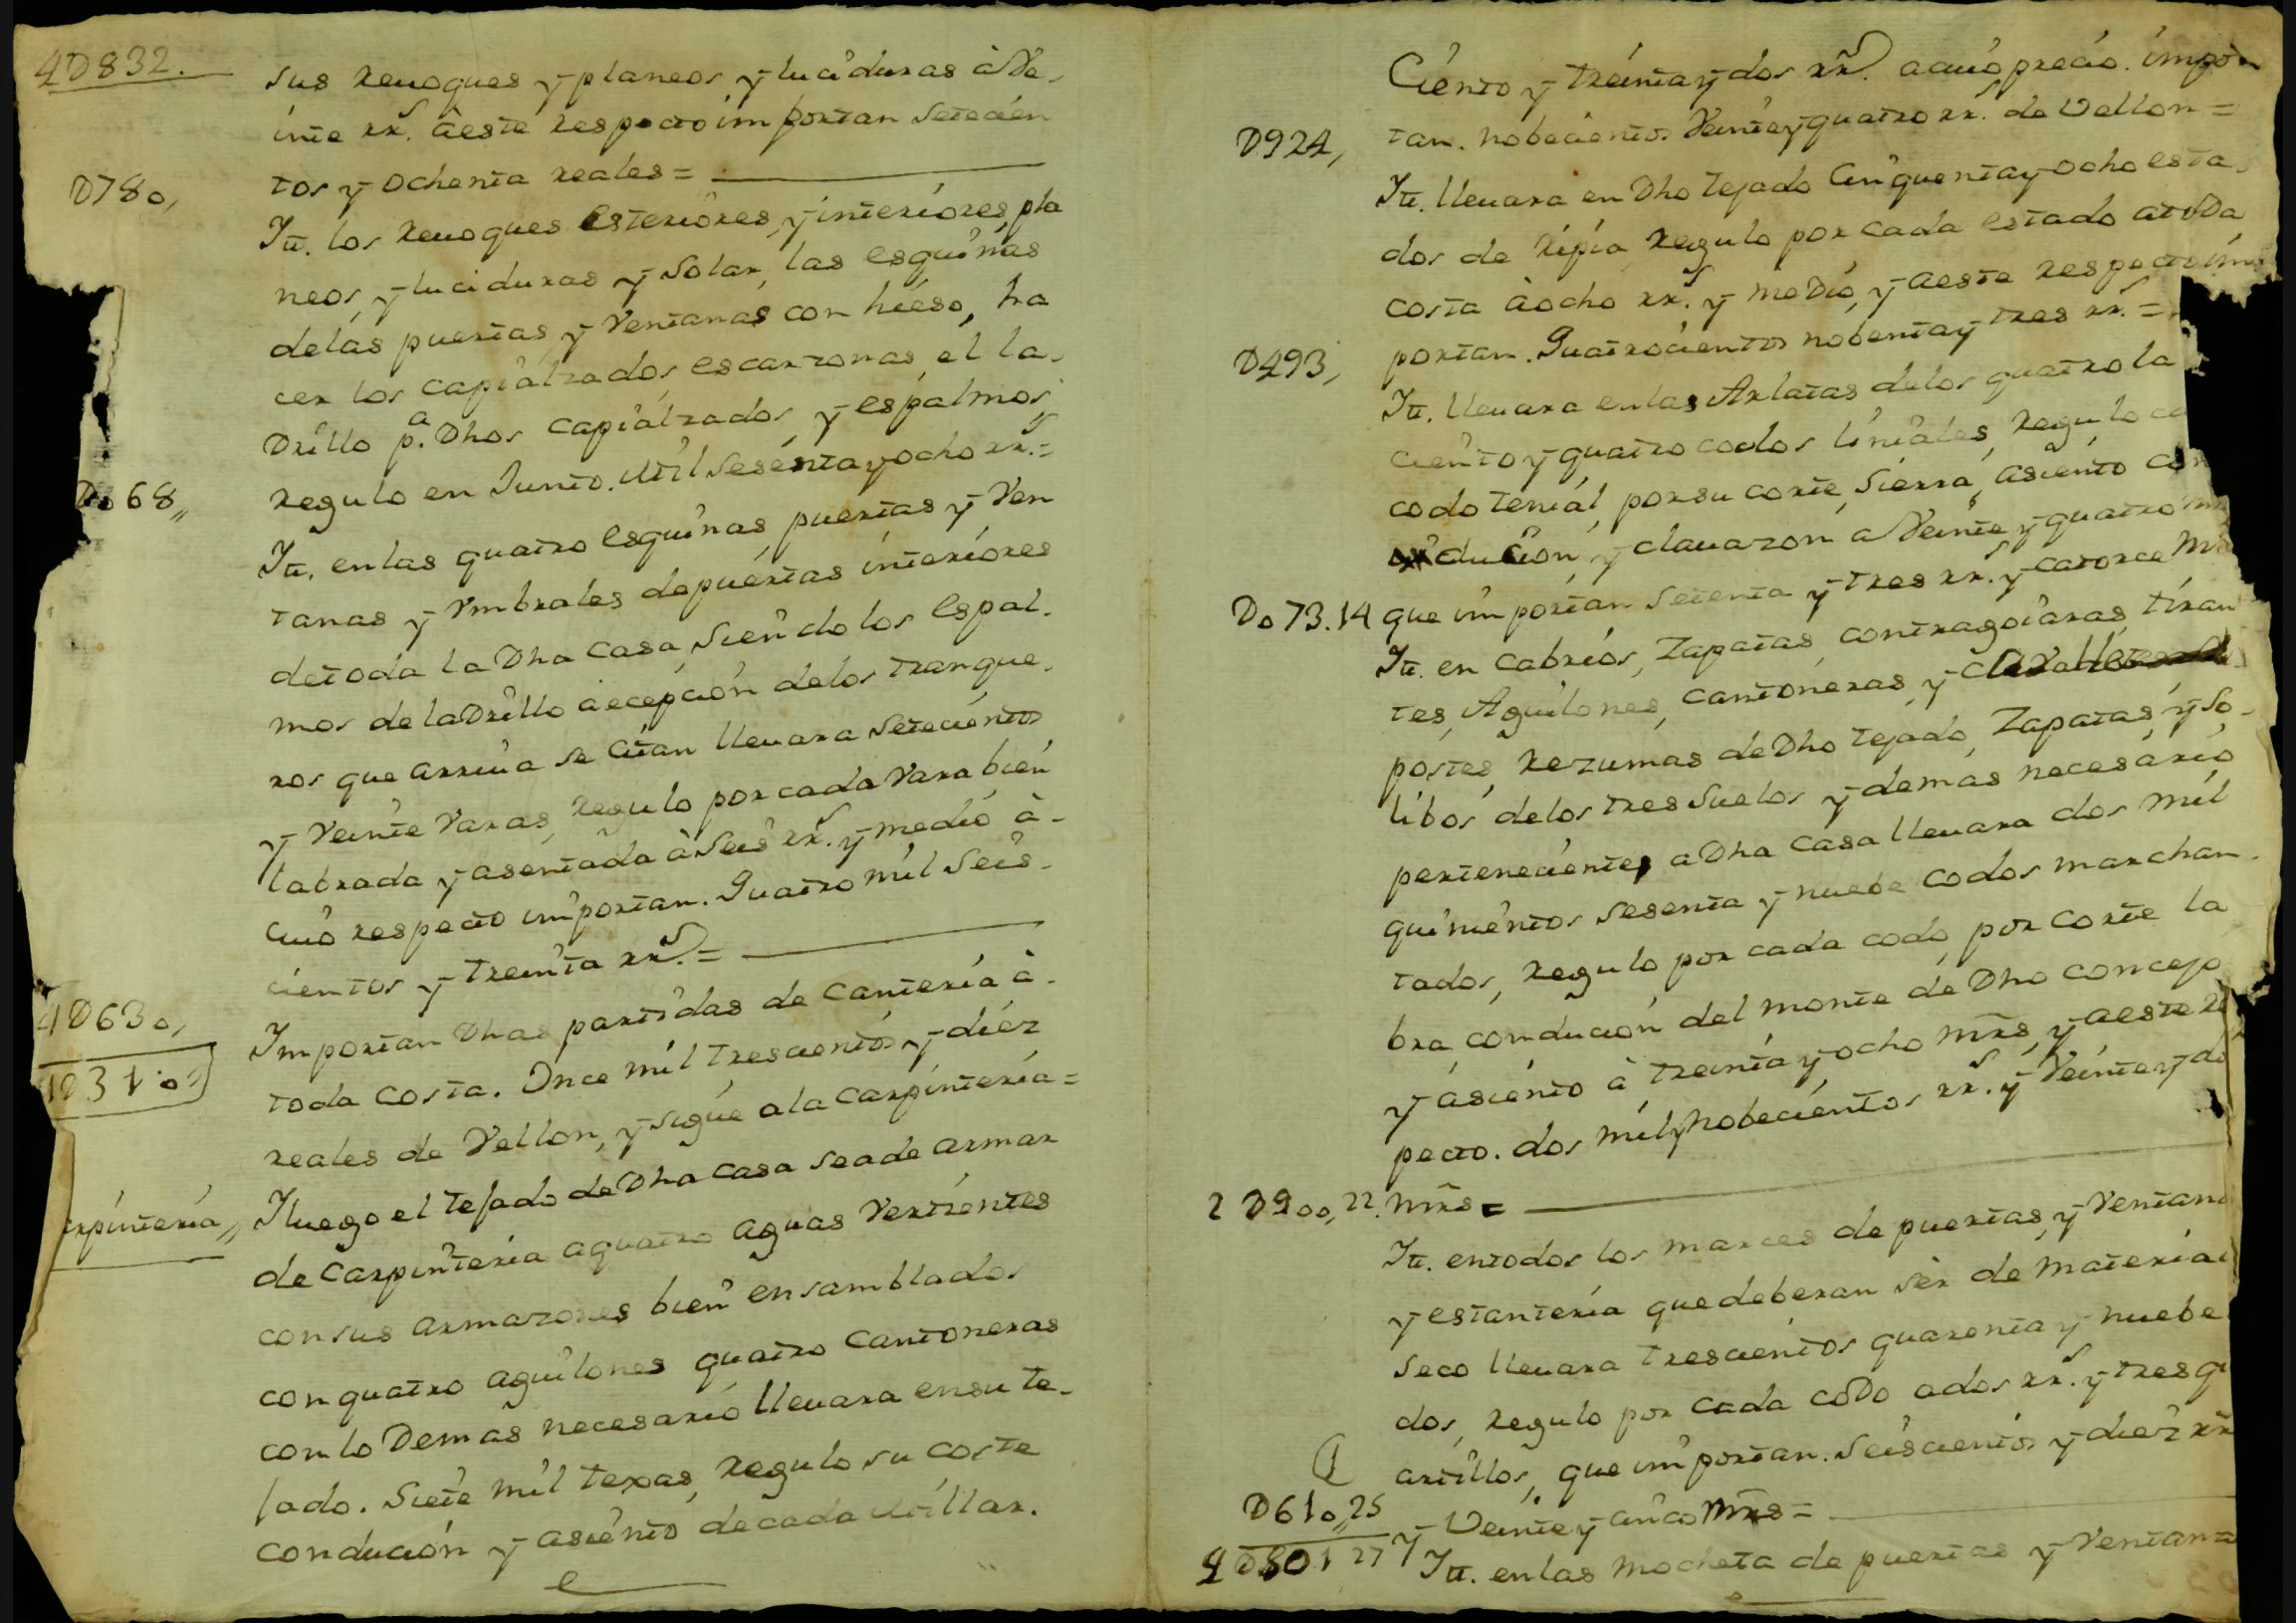 4D832.
sus Revoques y planeos, y luciduras à Ve-
inte rr.s àeste respecto importan setecien
D780,
tos y ochenta reales =
Itt. los Revoques esteriores, y interiores, pla
neos, y luciduras y Solar, las esquinas
delas puertas, y Ventanas con hieso, ha
cer los capialzados, escarzonas, el la-
Drillo p.a Dhos capialzados, y espalmos
Do68,,
Regulo en Junto. Mil Sesenta y ocho rr.s=
Itt. en las quatro esquinas puertas y Ven
tanas y Vmbrales depuertas interiores
detoda la Dha casa, siendo los espal-
mos de laDrillo aecepción delos tranque-
ros que arriua se citan lleuara setecientos
y Veinte Varas, Regulo por cada Vara bien
labrada y asentada à seis rr.s y medio à-
cuio respecto importan. Quatro mil Seis-
4D630,
cientos y treinta rr.s =
Importan Dhas partidas de cantería à-
1D310=
toda costa. Once mil trescientos y diez
reales de Vellon, y sigue a la carpintería=
rpintería,,
Iluego el tejado de Dha casa seade armar
de carpintería aquatro aguas Vertientes
con sus armazones bien ensamblados
con quatro aguilones quatro cantoneras
con lo Demas necesario lleuara ensu te-
jado. Siete mil texas, Regulo su coste
condución y asiento de cada Millar.
Ciento y treinta y dos rr.s acuio precio. impor
D924,
tan. nobecientos Veinte y quatro rr.s de Vellon =
Itt. lleuara en Dho tejado Cinquenta y ocho esta-
dos de Ripia Regulo por cada estado atoDa
costa à ocho rr.s y meDio, y aeste respecto im
D493,
portan. Quatrocientos nobenta y tres rr.s =
Itt. lleuara en las Arlatas delos quatro la
ciento y quatro codos liniales, Regulo ca
codo tenial, por su corte, sierra, asiento con
dución y clauazon a Veinte y quatro mr
Do73.14 que importan setenta y tres rr.s y catorce Mr
Itt. en cabrios, Zapatas, contragoiaras, tiran
tes, Aguilones, cantoneras, y
postes, Rezumas de Dho tejado, Zapatas, y so-
libos delos tres suelos y demas necesario
pertenecientes a Dha casa lleuara dos mil
quinientos sesenta y nuebe codos marchan-
tados, Regulo por cada codo por corte la
bra, condución del monte de Dho concejo
y asiento à treinta y ocho mrs, y aeste res
pecto. dos mil y Nobecientos rr.s y Veinte y do
2D900,,22. mrs =
Itt. entodos los marces de puertas, y Ventana
y estantería que deberan sèr de material
seco lleuara trescientos quarenta y nuebe
dos, Regulo por cada coDo ados rr.s y tres qu
artillos, que importan. Seiscientos y diez rr
D610,,25
y Veinte y cinco Mrs =
4D801 27
Itt. en las mocheta de puertas y Ventana